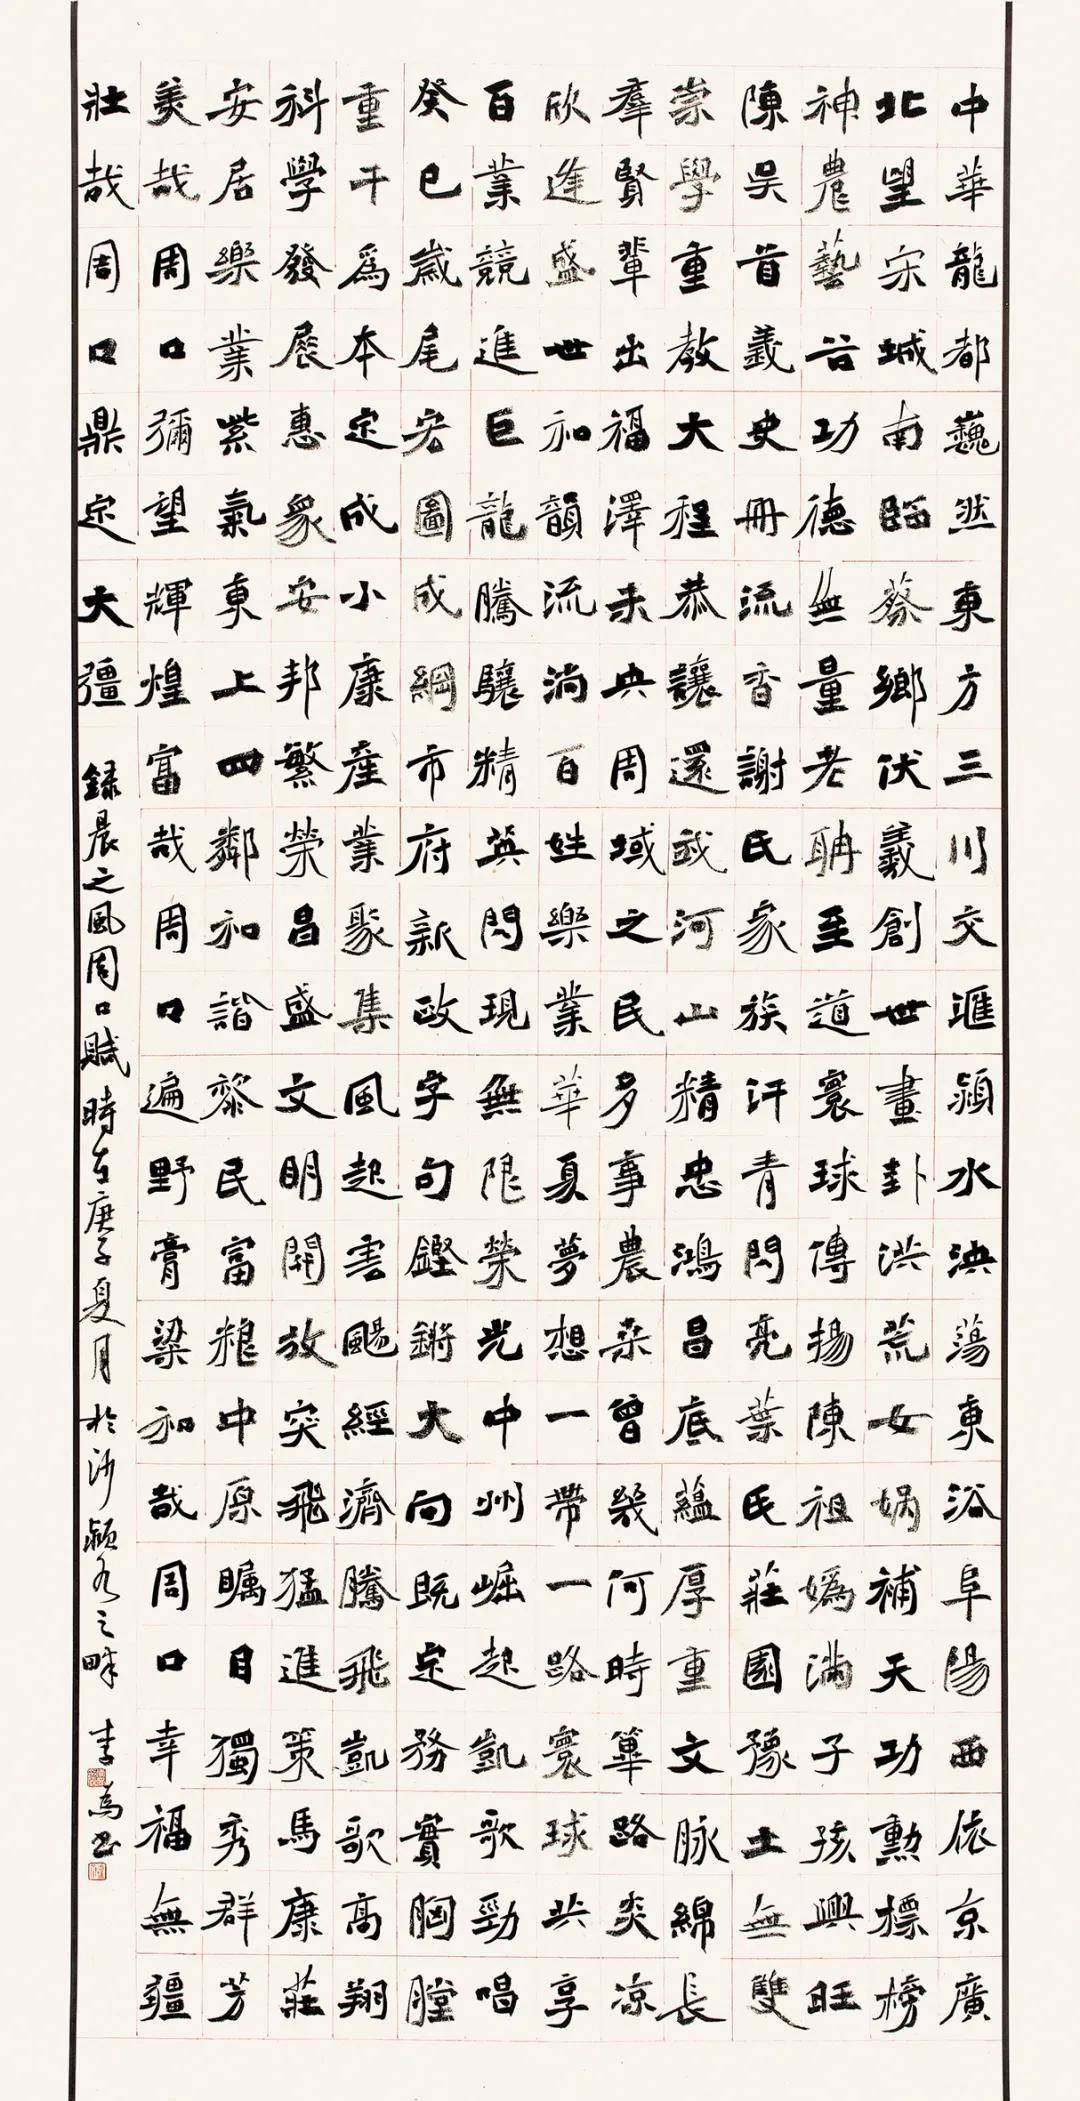 中華龍都巍然東方三川交滙潁水泱蕩東浴阜陽西依京廣
北望宋城南臨蔡鄉伏羲創世畫卦洪荒女媧補天功勳標榜
神農藝谷功德無量老聃至道寰球傳揚陳祖媯滿子孩興旺
陳吴首義史冊流香謝氏家族汗青閃亮葉氏莊園豫土無雙
崇學重教大程恭讓還我河山精忠鴻昌底蘊厚重文脉綿長
羣賢輩出福澤未央周域之民多事農桑曾幾何時篳路炎凉
欣逢盛世和韻流淌百姓樂業華夏夢想一帶一路寰球共享
百業競進巨龍騰驤精英閃現無限榮光中州崛起凱歌勁唱
癸巳歲尾宏圖成綱市府新政字句鏗鏘大向既定務實胸膛
重干爲本定成小康産業聚集風起雲颺經濟騰飛凱歌高翔
科學發展惠衆安邦繁榮昌盛文明開放突飛猛進策馬康莊
安居樂業紫氣東上四鄰和諧黎民富粮中原矚目獨秀群芳
美哉周口彌望輝煌富哉周口遍野膏粱和哉周口幸福無疆
壯哉周口鼎定大疆 録晨之風周口賦時在庚子夏月於沙潁水之畔 李為书